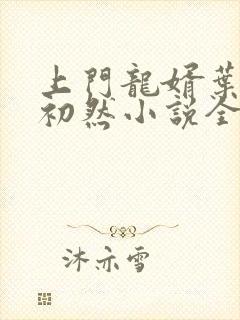 上門龍婿葉
初然小説全
沐亦雪